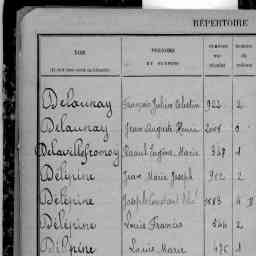 RÉPERTOIRE
NOM PRÉNOMS ET SURNOMS NUMÉROS
Delaunay François Julien Celestin 922 2
Delaunay Jean Auguste Henri 2008
Delavillefromoy Raoul Eugène Marie 348 1
Delépine Jean Marie Joseph 902 2
Delépine Joseph Constant 4
Delépine Louis Francis 544 2
Delépine Louis Marie 475 1